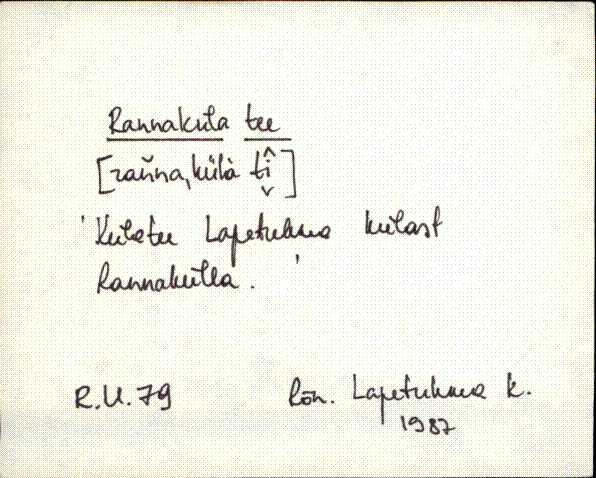 Rannaküla tee
[raǹna,külà tî̬]
'Külatee Lapetukme külast
Rannakülla.'
R.U.79 Rõn. Lapetukme k.
1987